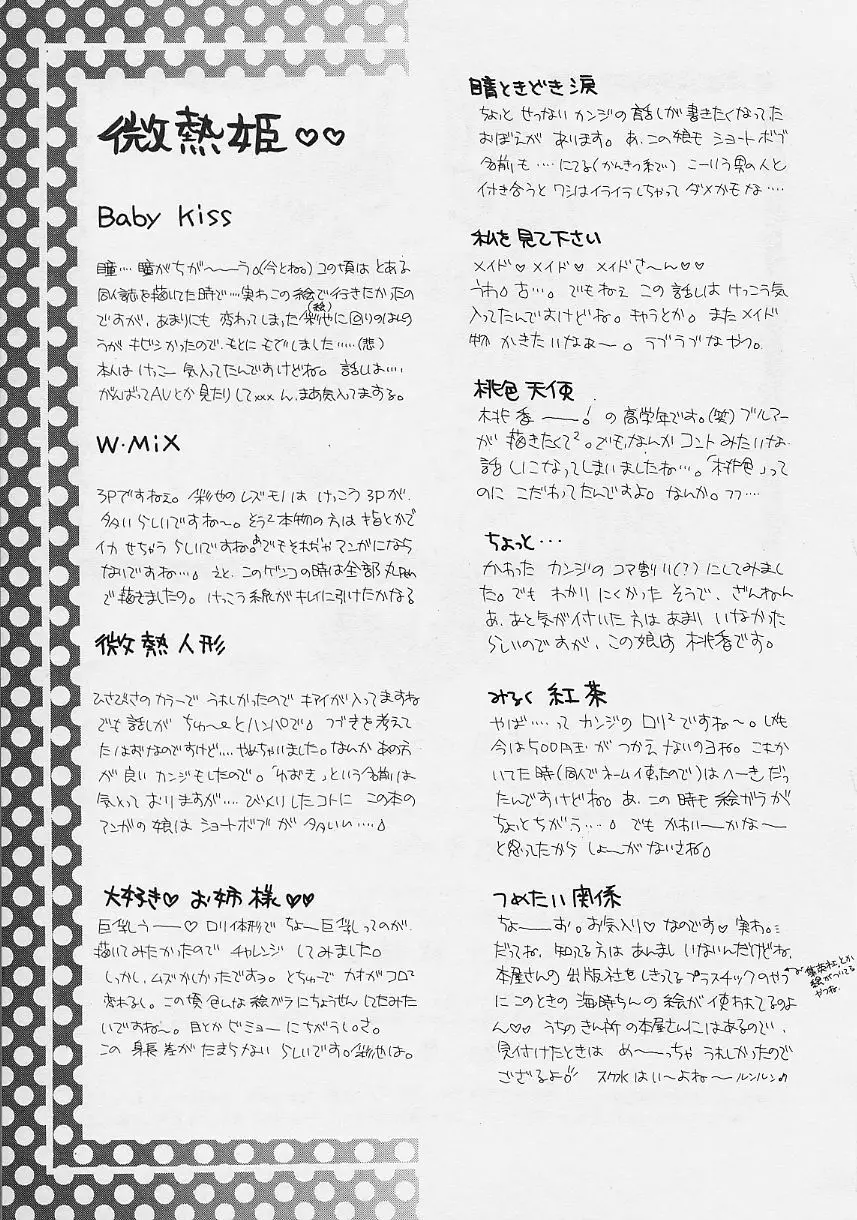 微熱姫♡♡
Baby Kiss
瞳‥‥瞳がちが〜〜う。(今とね。)コの頃は とある
同人誌を描いてた時で‥‥実わこの絵で行きたかったの
ですが、あまりにも 変わってしまった
うが キビシかったので、もとに もどしました‥‥(悲)
本人は けっこー 気入ってたんですけどね。 話しは‥‥
がんばってAVとか見たりしてxxx ん、まあ気入ってますよ。
W・MiX
3Pですねぇ。 のレズモノは けっこう 3Pが、
多いらしいですね〜。 本物の方は 指とかで
イカせちゃう らしいですね。でもそれぢゃマンガになら
ないですね‥‥。 えと、このゲンコの時は全部丸ペン
で描きましたの。 けっこう 線がキレイに引けたかなる
微熱人形
ひさびさの カラーで うれしかったので キアイが入ってますね
でも 話しが ちゅ〜とハンパで。 つづきを考えて
たはずなのですけど‥‥やめちゃいました。なんか あの方
が良い カンジもしたので。「ゆずき」という名前は
気入って おりますが‥‥びっくりしたコトに この本の
マンガの 娘は ショートボブ が 多いい‥‥。
大好き♡ お姉様♡♡
巨乳しう〜〜♡ ロリ体形で ちょー巨乳ってのが、
描いてみたかったので チャレンジ してみました。
しかし、ムズかしかったですョ。 とちゅーで カオがコロコロ
変わるし。 この頃 は絵ガラにちょうせんしてたみた
いですね〜。 目とか ビミョーに ちがうしさ。
この 身長差が たまらない らしいです。
晴ときどき涙
ちょっと せつない カンジの 話しが 書きたくなってた
おぼえが あります。 あ、この娘も ショートボブ
名前も‥‥にてる こーいう男の人と
付き合うと ワシはイライラしちゃって ダメかもな‥‥
私を見て下さい
メイド♡メイド♡ メイドさ〜ん♡♡
うわ。古‥‥。 でもねぇ この話しは けっこう気
入ってたんですけどね。キャラとか。 また メイド
物 かきたいなぁ〜。 ラブラブ な やつ。
桃色天使
桃香〜〜! の 高学年です。(笑) ブルマー
が 描きたくて。でもなんか コントみたいな
話しになってしまいましたね‥‥。「桃色」って
のに こだわってたんですよ。なんか。フフ‥‥
ちょっと‥‥
かわった カンジの コマ割り(?)にしてみまし
た。でも わかりにくかった そうで、ざんねん
あ、あと気が付いた 方は あまり いなかった
らしいのですが、 この娘は 桃香です。
みるく 紅茶
やば‥‥って カンジの ロリ²ですね〜。しかも
今は 500円玉が つかえないのョね。 これか
いてた時(同人でネーム使ったので)はへーきだっ
たんですけどね。 あ、この時も 絵ガラが
ちょっとちがう‥‥。 でも かわいーかな〜
と思ってたから しょーがないさね。
つめたい 関係
ちょ〜〜お。お気入り♡ なのです♡ 実わ。
だってね、知ってる方は あんまし いないんだけどね、
本屋さんの 出版社をしきってるプラスチックのやつ
に このときの 海時ちんの 絵が 使われてるのよ
ん♡♡ うちのきん所の本屋さんにはあるので、
見付けたときは め〜っちゃ うれしかったので
ござるよ。 スク水はい〜よね〜 ルンルン♪
集英社とか